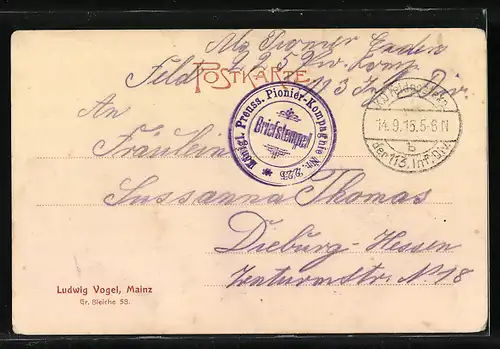 Abs. Pionier
225 Pion. Komp.
Feld
POSTKARTE
113 Inf. Div.
Königl. Preuss. Pionier-Kompagnie Nr. 225
Briefstempel
K.D. Feldpostexp.
14.9.15.5-6 N
b
der 113. Inf. Div.
An
Fräulein
Sussanna Thomas
Dieburg-Hessen
No 18
Ludwig Vogel, Mainz
Gr. Bleiche 53.